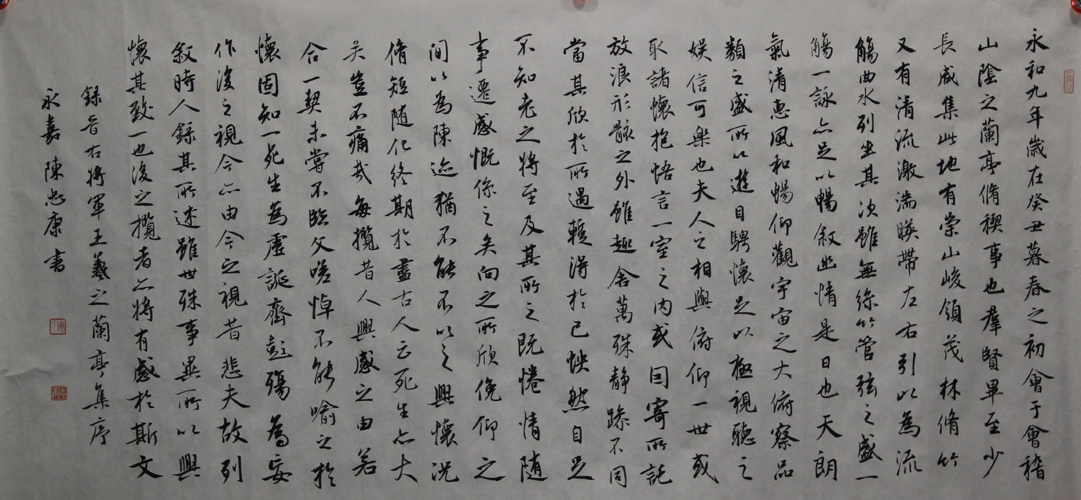 永和九年歲在癸丑暮春之初會于會稽
山陰之蘭亭脩稧事也羣賢畢至少
長咸集此地有崇山峻領茂林脩竹
又有清流激湍暎帶左右引以為流
觴曲水列坐其次雖無絲竹管弦之盛一
觴一詠亦足以暢叙幽情是日也天朗
氣清惠風和暢仰觀宇宙之大俯察品
類之盛所以遊目騁懷足以極視聽之
娛信可樂也夫人之相與俯仰一世或
取諸懷抱悟言一室之內或因寄所託
放浪形骸之外雖趣舍萬殊靜躁不同
當其欣於所遇蹔得於己怏然自足
不知老之將至及其所之既惓情隨
事遷感慨係之矣向之所欣俛仰之
間以為陳迹猶不能不以之興懷況
脩短隨化終期於盡古人云死生亦大
矣豈不痛哉每攬昔人興感之由若
合一契未嘗不臨文嗟悼不能喻之於
懷固知一死生為虛誕齊彭殤為妄
作後之視今亦由今之視昔悲夫故列
叙時人錄其所述雖世殊事異所以興
懷其致一也後之攬者亦將有感於斯文
錄晉右將軍王羲之蘭亭集序
永嘉陳忠康書